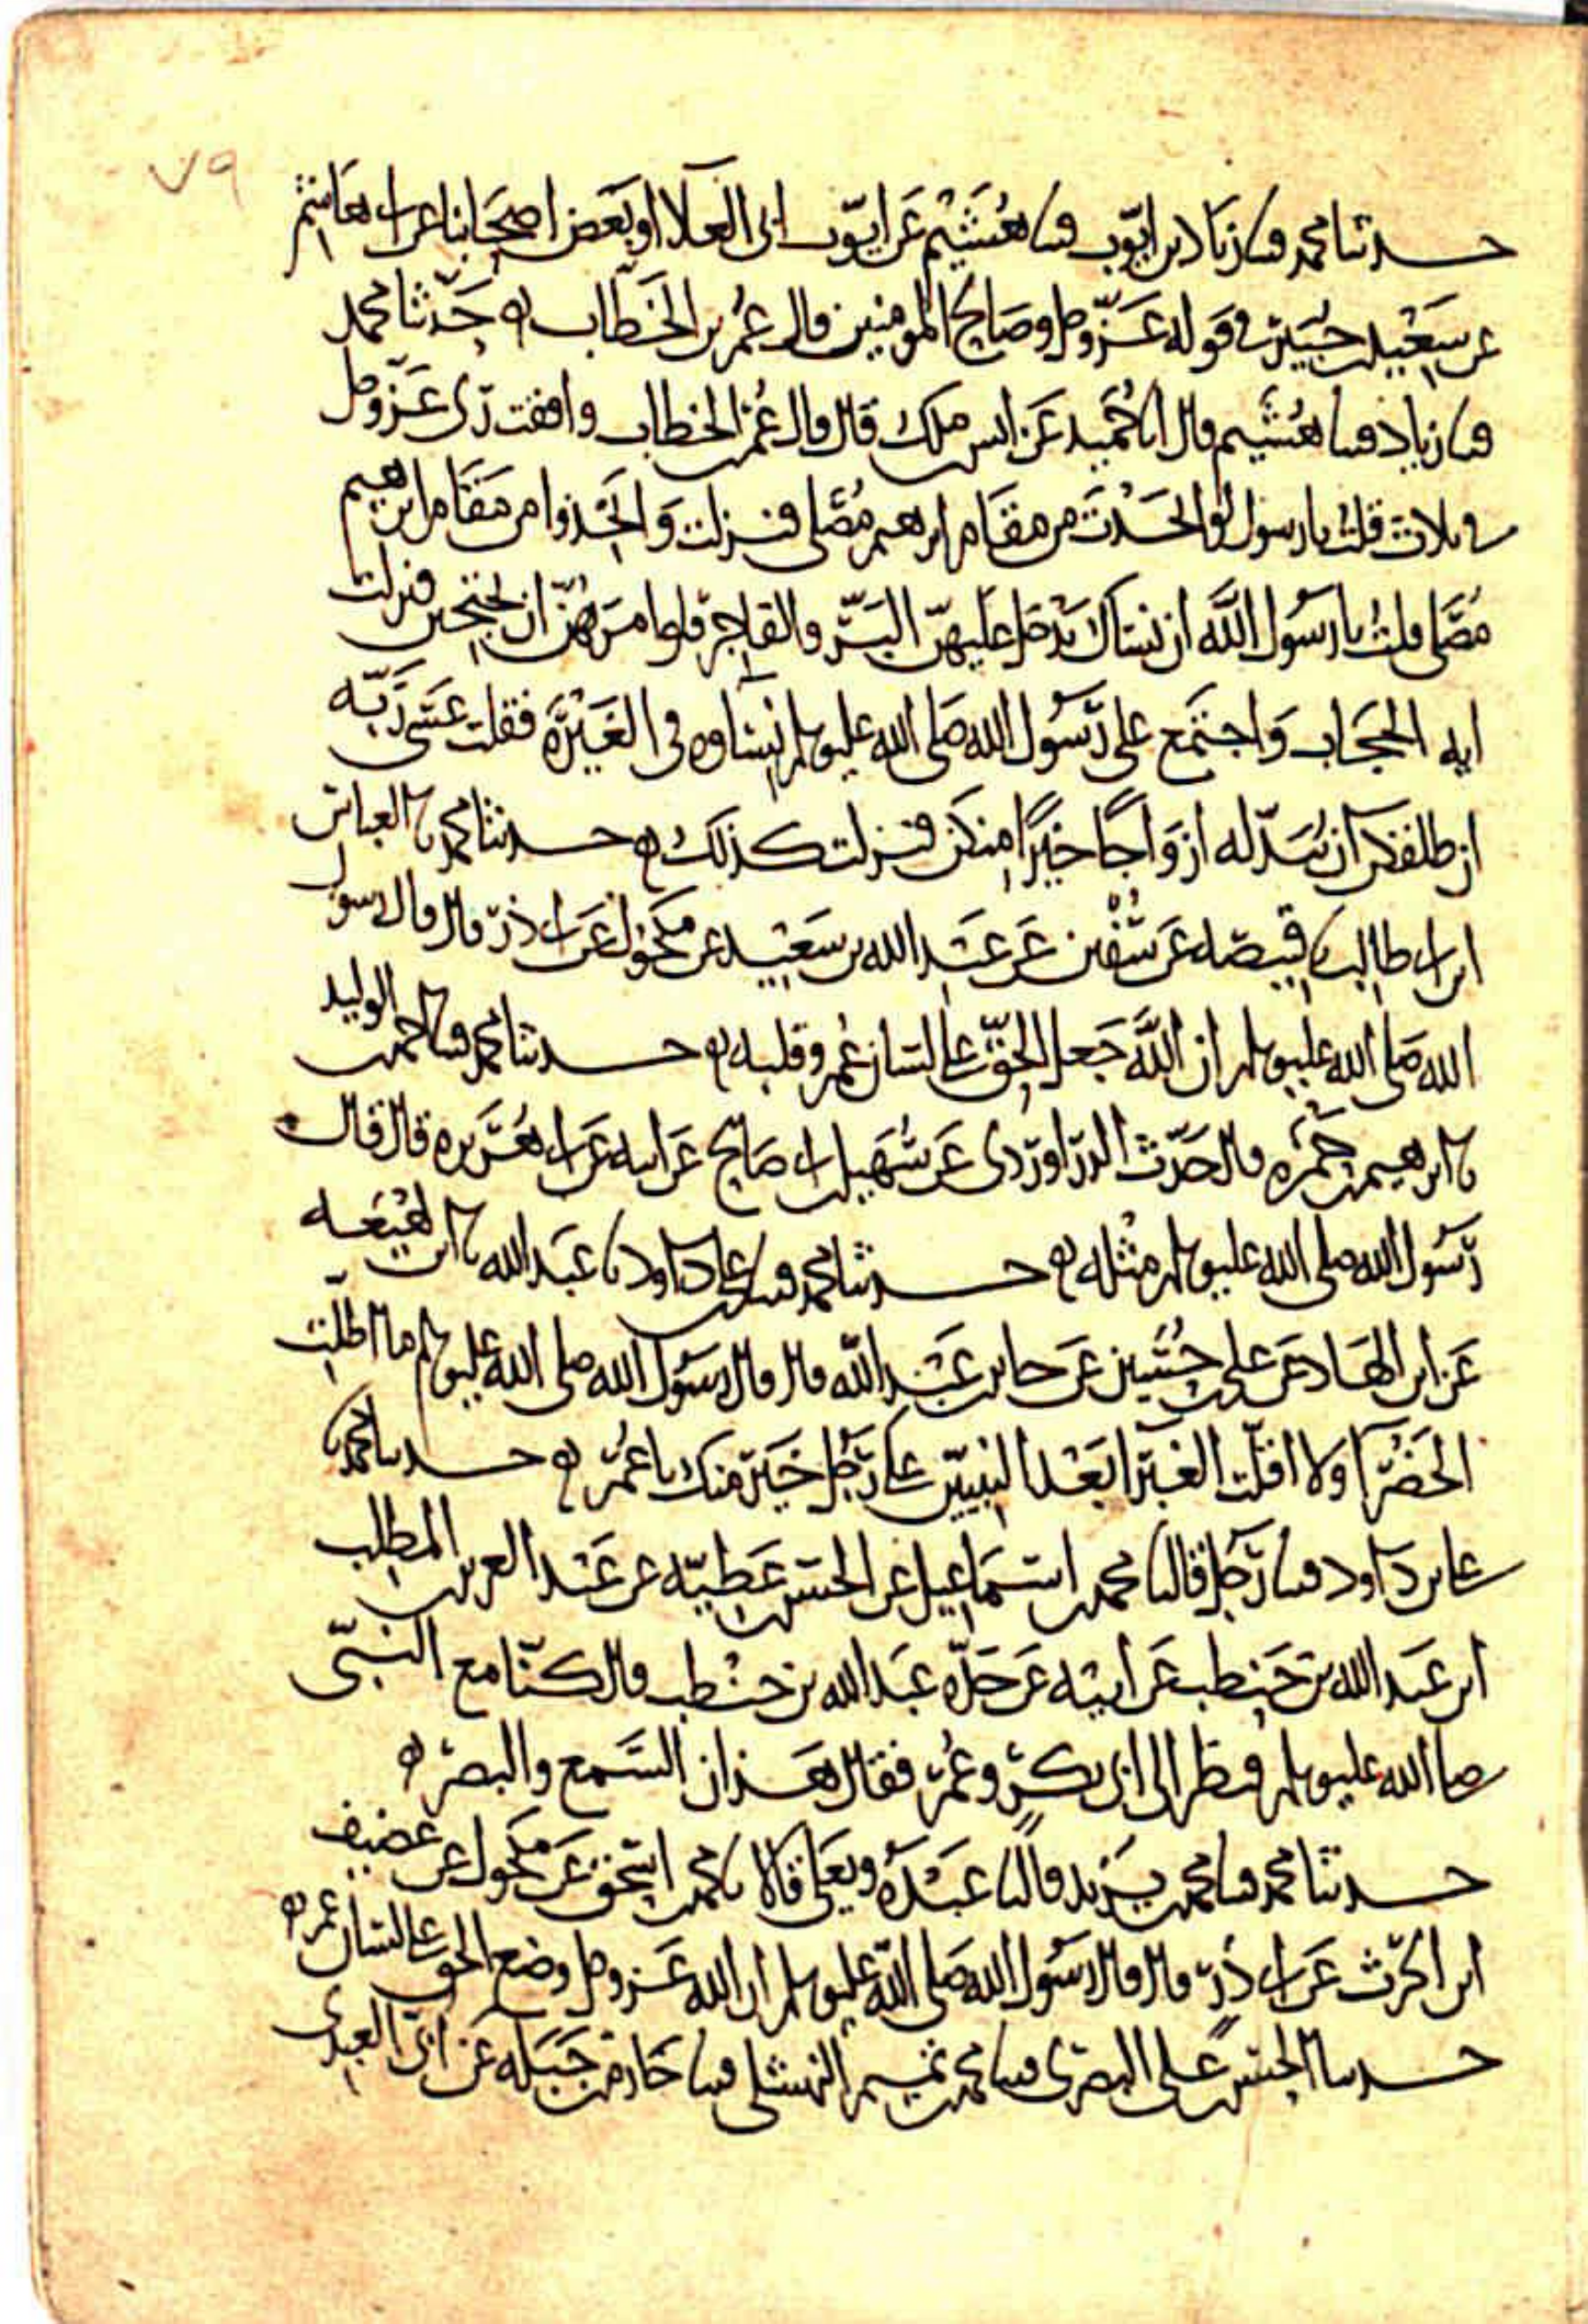 ٧٩
حدثنا محمد قثنا زياد بن ايوب قثنا هُشَيْم عَن ايوب ابى العلا او بَعض اصحَابنا عن ابى هاشم
عن سَعْيد بن جُبَير فى قوله عَزّوجل وصَالح المومنين قال عُمر بن الخَطّاب ه حَدّثنا محمد
قثنا زياد قثنا هُشَيم قال انا حُمَيد عَن انس بن ملك قال قال عُمر بن الخطاب وافقت ربى عَزّوجل
فى ثلاث قلت يا رسول لو اتخَذْتَ من مقَام ابرهيم مُصَّلى فنزلت وَاتّخذوا من مَقَام ابرهيم
مُصَّلى قلتُ يا رسُول اللَّه ان نساك يَدْخل عليهنّ البَرّ والفاجر فلو امرَتهُنّ ان يحتجبن فنزلت
ايه الحجَاب وَاجتمَع على رَسُول الله صَلى الله عليه وسلم نسَاوه فى الغَيْرَة فقلت عَسَى رَبّه
ان طلقكن آن يُبَدّله ازوَاجًا خيرًا منكن فنزلت كذلك ه حدثنا محمد نا العباس
ابن ابى طالب نا قبيصَه عَن سُفْين عَن عَبد الله بن سَعْيد عن مكحُول عَن ابى ذر قال قال رسول
الله صَلى الله عليه وسلم ان اللَّه جَعل الحقّ على لسَان عُمر وقلبه ه حدثنا محمد قثنا احمد بن الوليد
نا ابرهيم بن حَمْزه قال حَدّث الدرَاورْدى عَن سُهَيل بن ابى صَالح عَن ابيه عَن ابى هُرَيره قال قال
رَسُول الله صلى الله عليه وسلم مثْله ه حدثنا محمد قثنا على بن داود نا عَبد الله نا ابن لهيْعَه
عَن ابن الهَاد عَن على بن حُسَين عَن جابر بن عَبْد اللّه قال قال رسُول الله صلى الله عليه وسلم ما اظلّت
الخَضْرا ولا اقلّت الغبْرا بعْد النبيّين على رَجُل خَيرَ منك يا عُمَر ه حدثنا محمد نا
على بن دَاود قثنا رَجُل قال نا محمد بن اسمَاعيل عن الحسَن بن عَطيّه عن عَبْد العزيز بن المطلب
ابن عَبد الله بن حَنطب عَن ابيْه عَن جَدّه عبَد الله بن حنْطب قال كنّا مع النبىّ
صلى الله عليه وسلم فنظر الى ابى بكر وعُمَر فقال هَذان السَّمع والبصَر ه
حدثنا محمد قثنا محمد بن يزَيد قال نا عَبْدَه ويَعْلى قالا نا محمد بن اسحَق عَن مكحُول عن غضيف
ابن الحرث عَن ابى ذر قال قال رسُول الله صَلى اللّه عليه وسلم ان الله عَزوجل وضع الحق على لسَان عُمر ه
حدثنا الحسَن بن عَلى البصَرى قثنا محمد بن تميم النهشلى قثنا خازم بن جَبَله عَن ابن العبدى